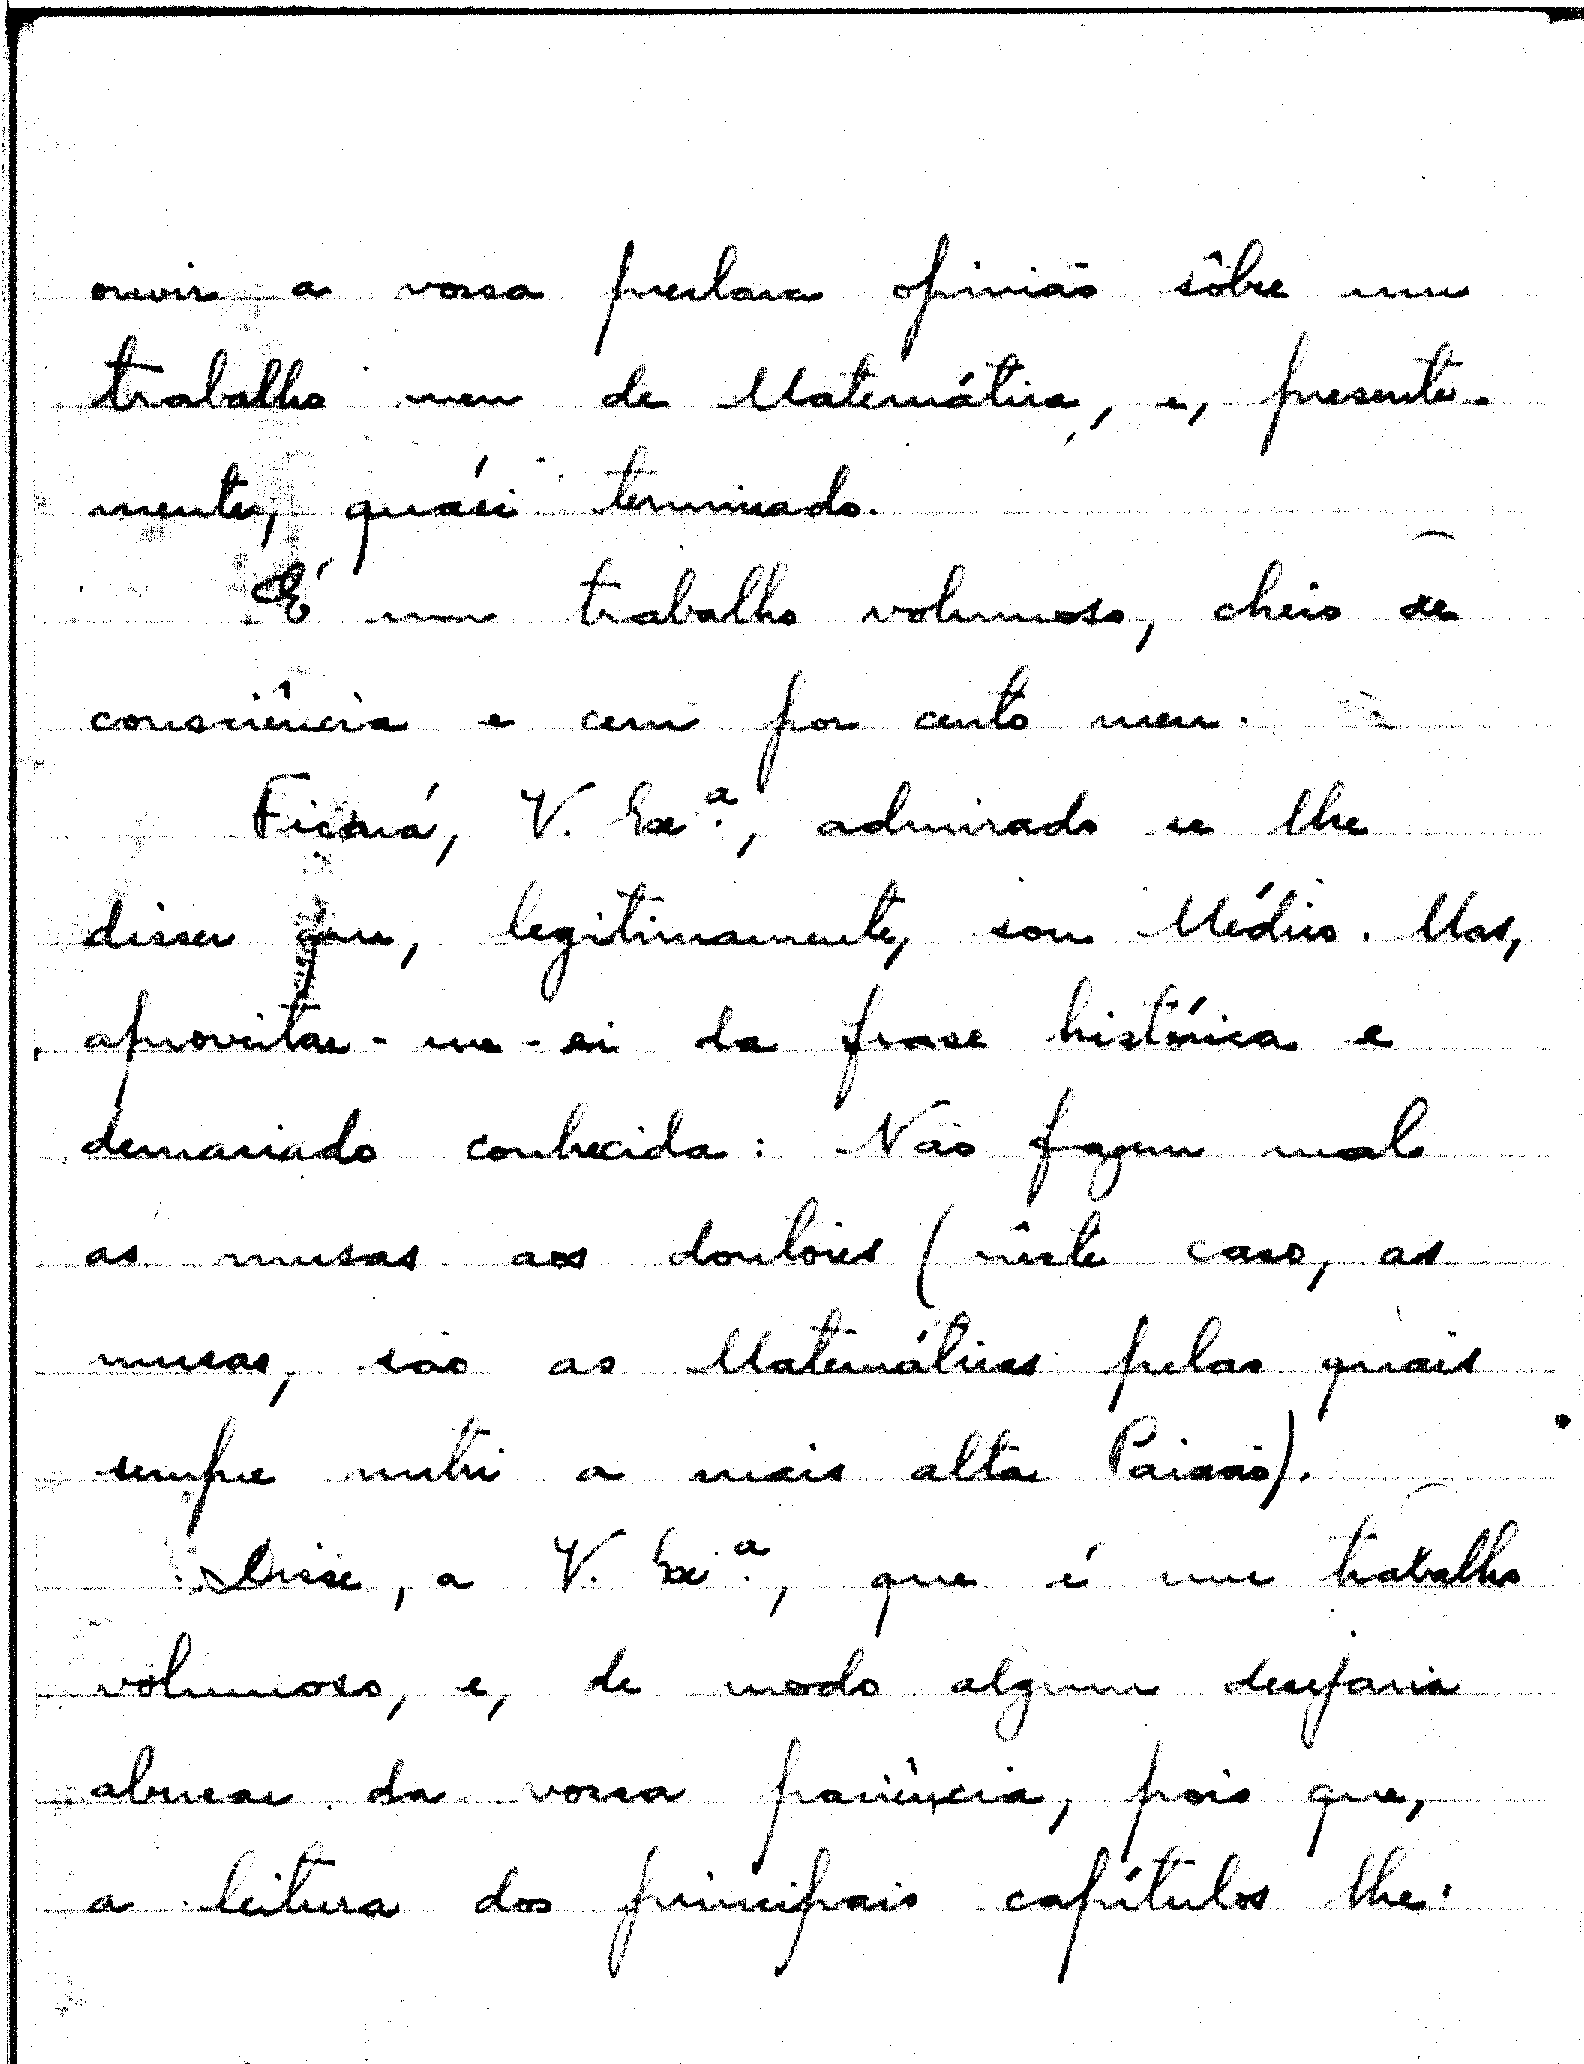 ouvir a vossa preclara opinião sôbre um
trabalho meu de Matemática, e, presente-
mente, quási terminado.
É um trabalho volumoso, cheio de
consciência e cem por cento meu.
Ficará, V. Exª., admirado se lhe
disser que, legitimamente, sou Médico. Mas,
aproveitar-me-ei da frase histórica e
demasiado conhecida: Não fazem mal
as musas aos doutores (neste caso, as
musas, são as Matemáticas pelas quais
sempre nutri a mais alta Paixão).
Disse, a V. Exª., que é um trabalho
volumoso, e, de modo algum desejaria
abusar da vossa paciência, pois que,
a leitura dos principais capítulos lhe